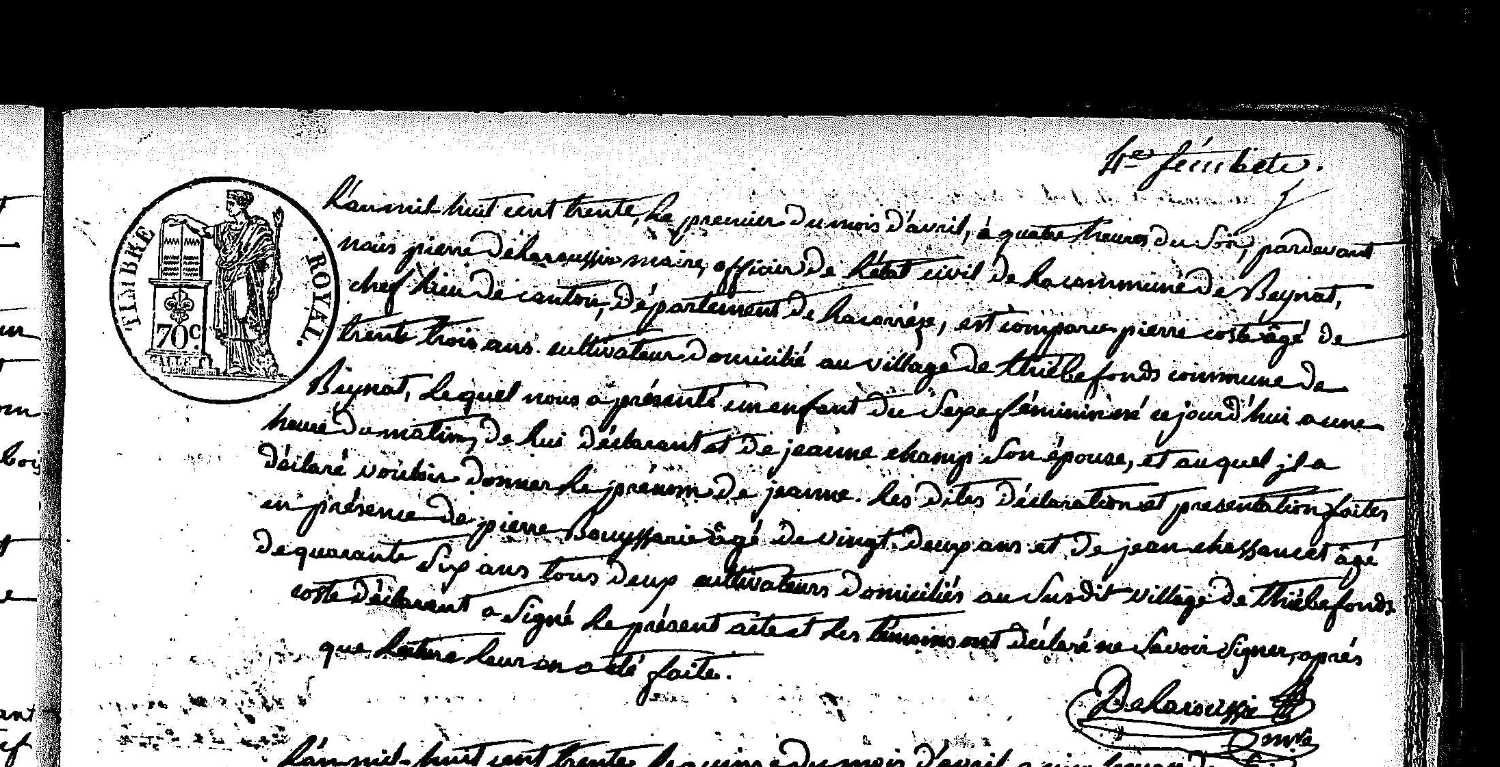 4e fémbete.
L'an mil huit cent trente, le premier du mois d'avril, à quatre heures du soir, pardevant
nous pierre delaroussie maire, officier de l'état civil de la commune de Beynat,
chef lieu de canton, département de la corrèze, est comparu pierre coste âgé de
trente trois ans cultivateur domicilié au village de thiébefonds commune de
Beynat, lequel nous a présenté un enfant du sexe féminin né cejourd'hui a une
heure du matin, de lui déclarant et de jeanne champ son épouse, et auquel il a
déclaré vouloir donner le prénom de jeanne. les dites déclaration et presentation faites
en présence de pierre Bouyssarie âgé de vingt deux ans et de jean chassancet âgé
de quarante six ans tous deux cultivateurs domiciliés au susdit village de thiébefonds
coste déclarant a signé le présent acte et les témoins ont déclaré ne savoir signer, après
que lecture leur en a été faite.
Delaroussie
mre
L'an mil huit cent trente le quinze du mois d'avril a
TIMBRE ROYAL.
70c